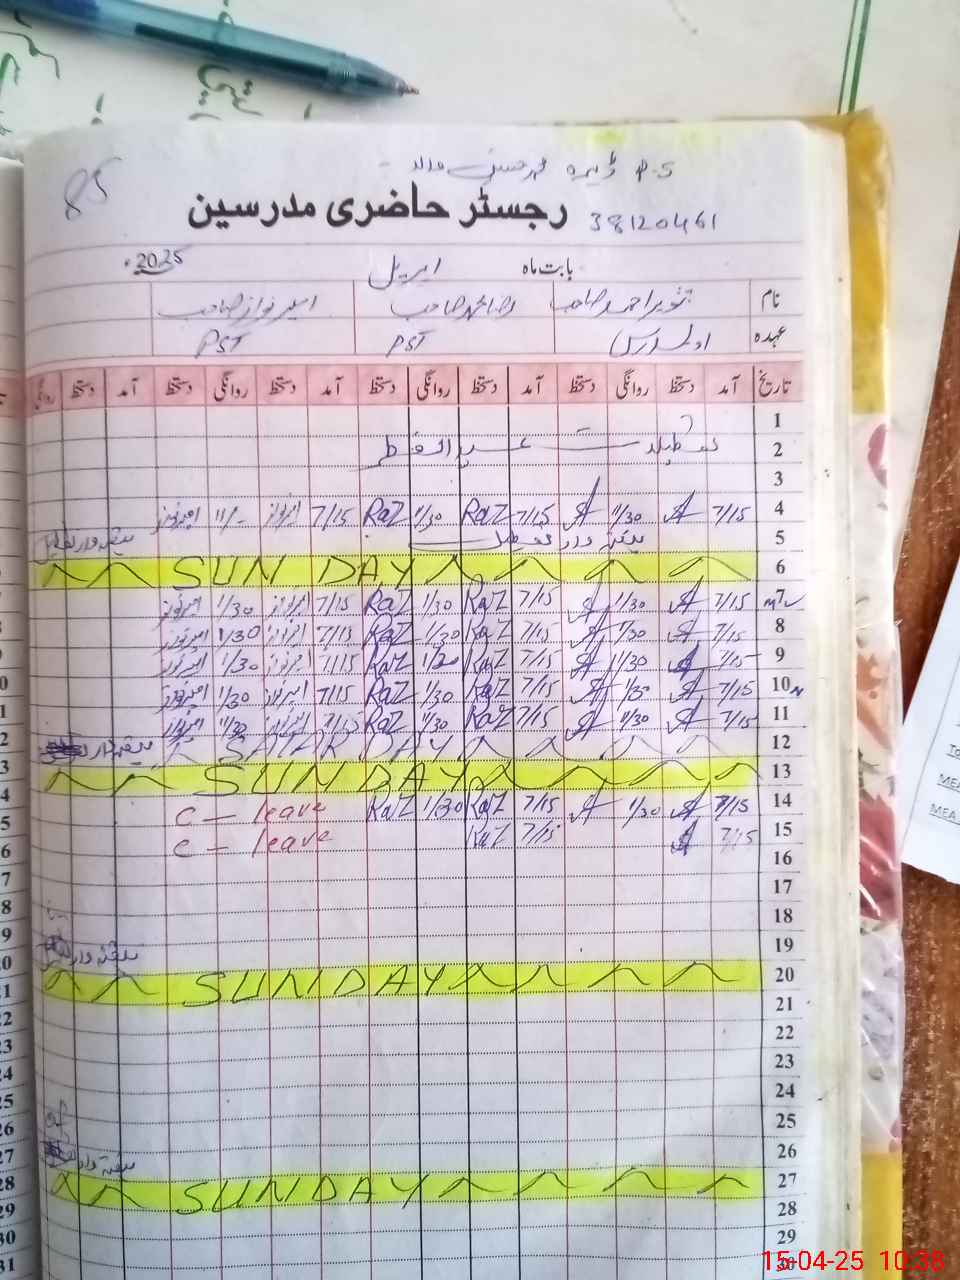 85
P.S ڈیرہ محمد حسنی والہ
رجسٹر حاضری مدرسین 38120461
بابت ماہ اپریل 2025
نام تنویر احمد صاحب رضا محمد صاحب امیر نواز صاحب
عہدہ PST PST
تاریخ آمد دستخط روانگی دستخط آمد دستخط روانگی دستخط آمد دستخط روانگی دستخط آمد دستخط روانگی
1
2 تعطیلات عیدالفطر
3
4 7/15 A 11/30 A 7/15 RaZ 11/30 RaZ 7/15 امیرنواز 11/- امیرنواز
5 ہفتہ وار تعطیل
6 SUNDAY
7 7/15 A 11/30 A 7/15 RaZ 1/30 RaZ 7/15 امیرنواز 1/30 امیرنواز
8 7/15 A 1/30 A 7/15 RaZ 1/30 RaZ 7/15 امیرنواز 1/30 امیرنواز
9 7/15 A 1/30 A 7/15 RaZ 1/30 RaZ 7/15 امیرنواز 1/30 امیرنواز
10 7/15 A 1/30 A 7/15 RaZ 1/30 RaZ 7/15 امیرنواز 1/30 امیرنواز
11 7/15 A 11/30 A 7/15 RaZ 11/30 RaZ 7/15 امیرنواز 11/30 امیرنواز
12 ہفتہ وار
13 SUNDAY
14 7/15 A 1/30 A 7/15 RaZ 1/30 RaZ C - leave
15 7/15 A 7/15 RaZ C - leave
16
17
18
19 ہفتہ وار
20 SUNDAY
21
22
23
24
25
26 ہفتہ وار
27 SUNDAY
28
29
30
To
MEA
MEA
15-04-25 10:38